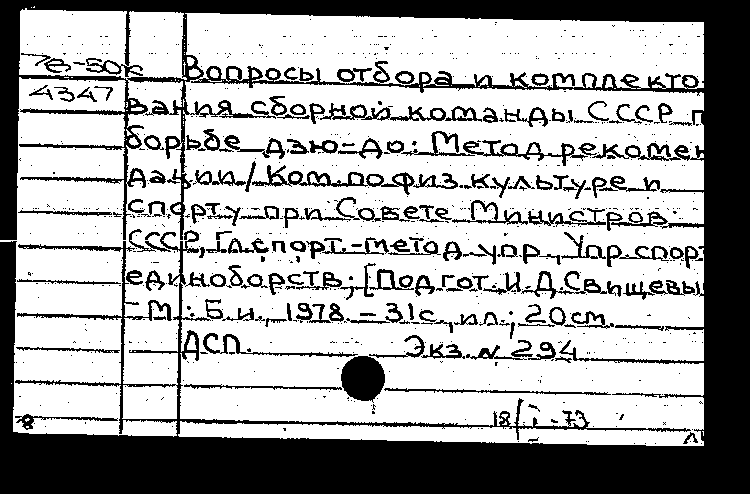 78-50к Вопросы отбора и комплекто-
4347 вания сборной команды СССР п
борьбе дзю-до: Метод. рекомен
дации / Ком. по физ. культуре и
спорту при Совете Министров
СССР, Гл. спорт.-метод. упр., Упр. спорт
единоборств; [Подгот. И.Д. Свищевы
- М.: Б.и., 1978. - 31с., ил.; 20см.
ДСП. Экз. № 294
8